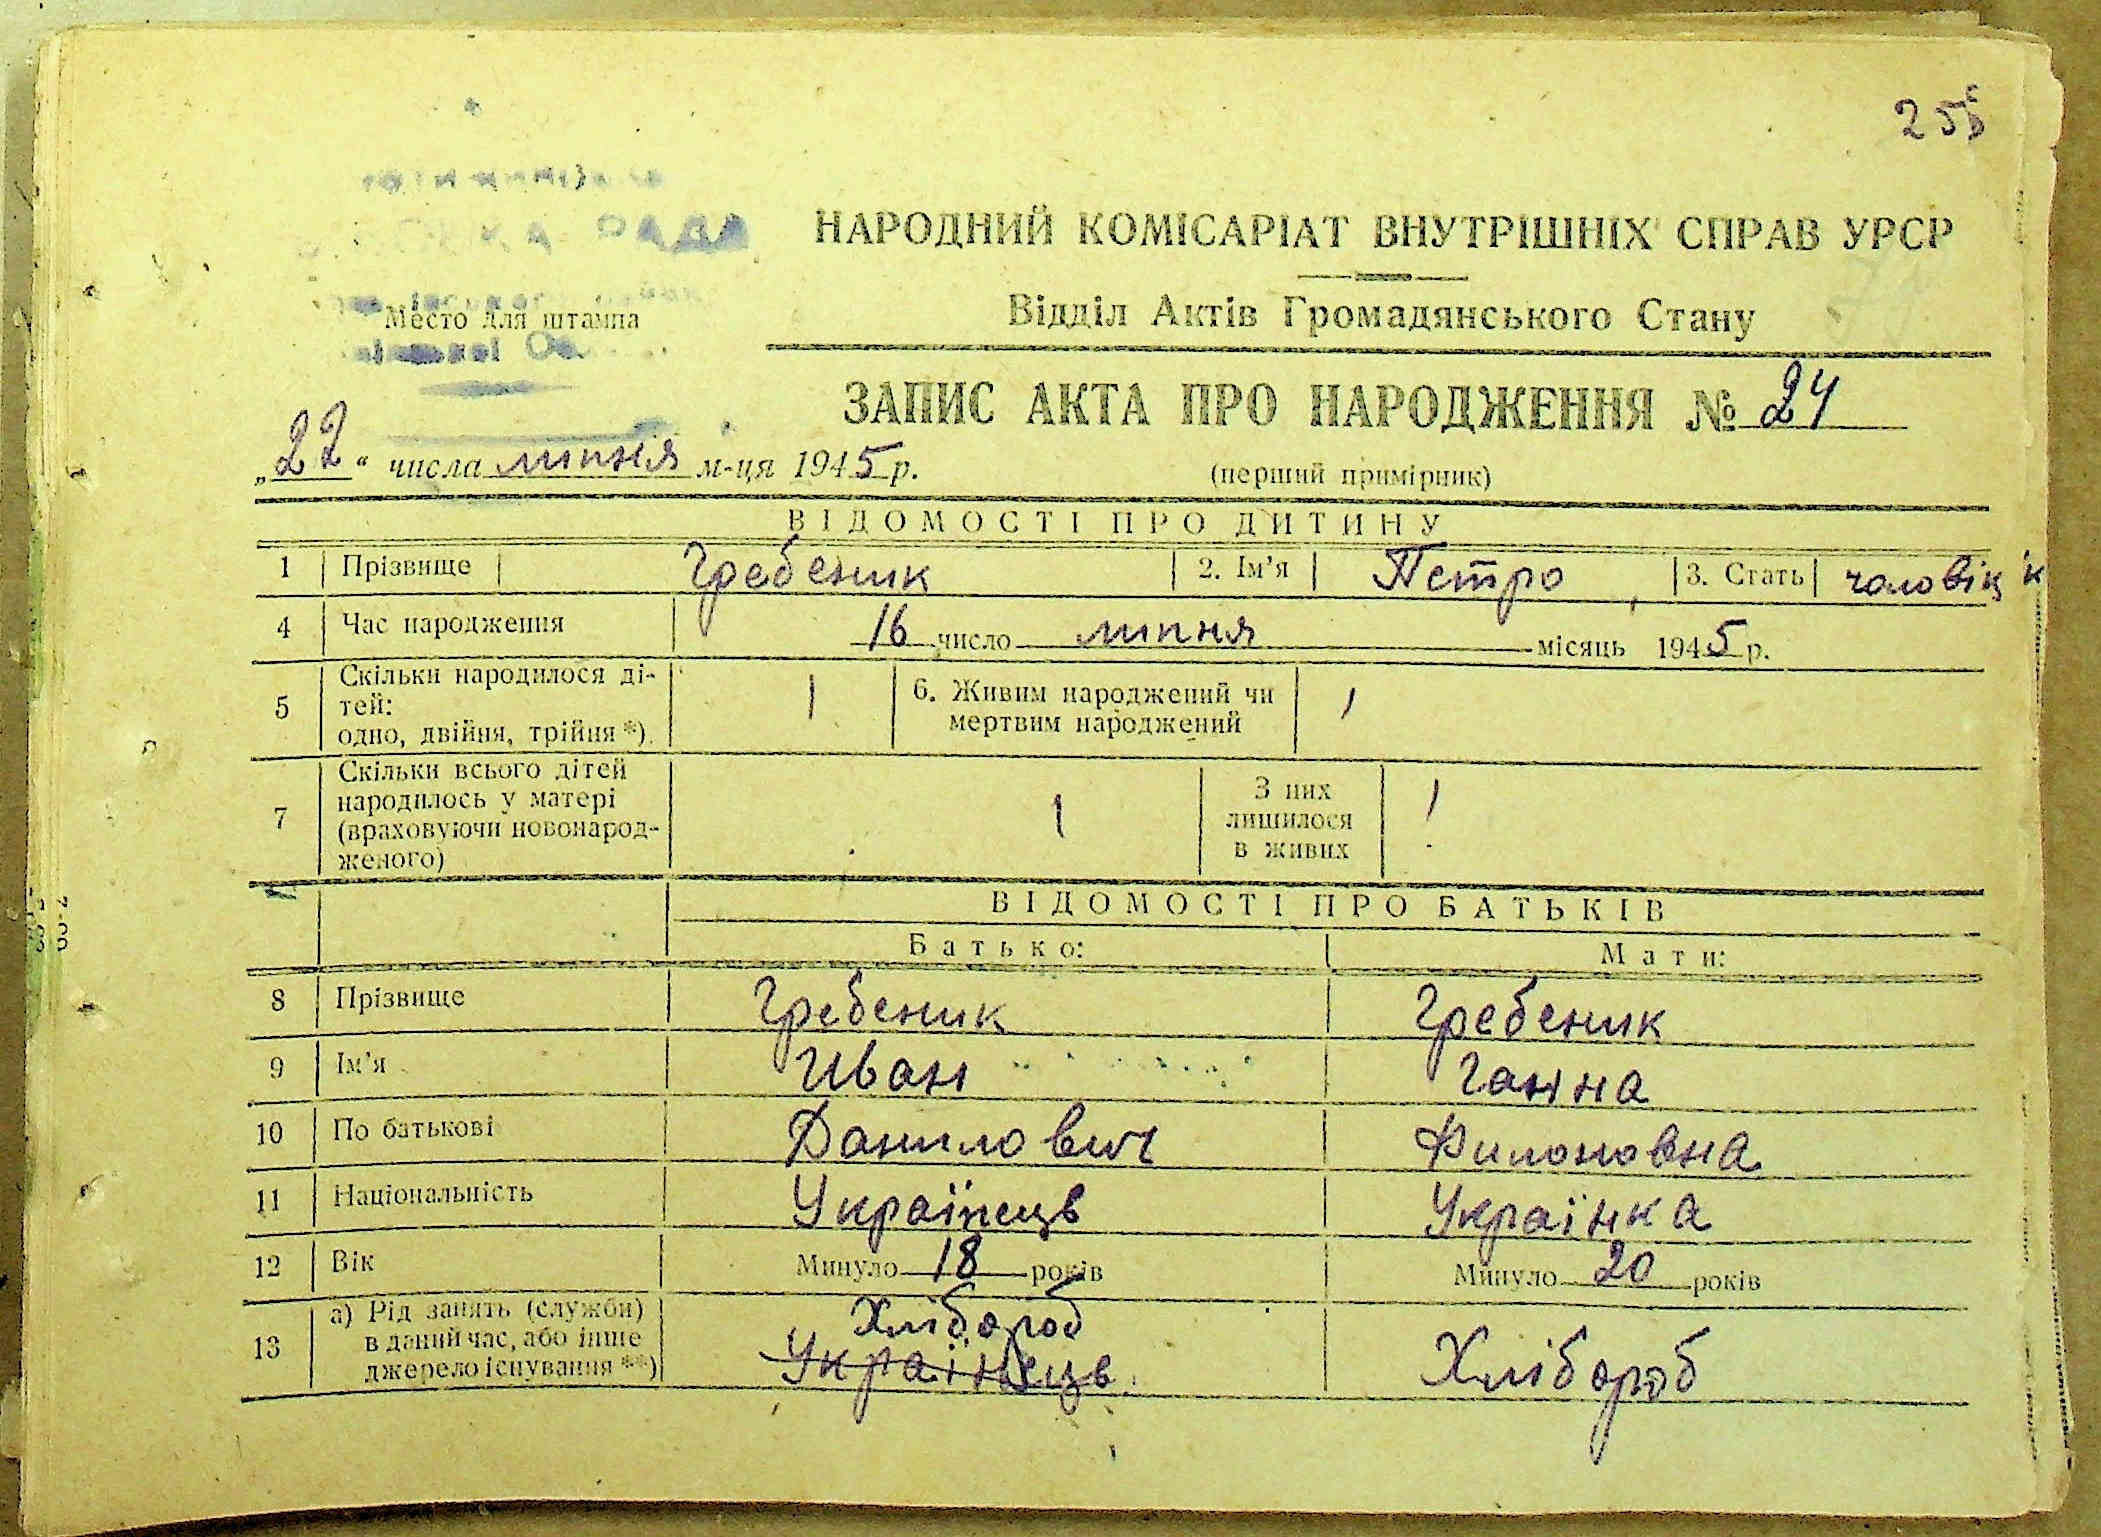 255
НАРОДНИЙ КОМІСАРІАТ ВНУТРІШНІХ СПРАВ УРСР
РАДА
Место для штампа
Відділ Актів Громадянського Стану
ЗАПИС АКТА ПРО НАРОДЖЕННЯ № 24
„22“ числа липня м-ця 1945 р.
(перший примірник)
ВІДОМОСТІ ПРО ДИТИНУ
1 Прізвище Гребеник 2. Ім’я Петро 3. Стать чоловік
4 Час народження 16 число липня місяць 1945 р.
5 Скільки народилося ді-
тей:
одно, двійня, трійня *). 1
6. Живим народжений чи
мертвим народжений 1
7 Скільки всього дітей
народилось у матері
(враховуючи новонарод-
женого) 1
З них
лишилося
в живих 1
ВІДОМОСТІ ПРО БАТЬКІВ
Батько: Мати:
8 Прізвище Гребеник Гребеник
9 Ім’я Иван Ганна
10 По батькові Данилович Филоновна
11 Національність Українець Українка
12 Вік Минуло 18 років Минуло 20 років
13 а) Рід занять (служби)
в даний час, або інше
джерело існування **)
Хлібороб
Українець
Хлібороб